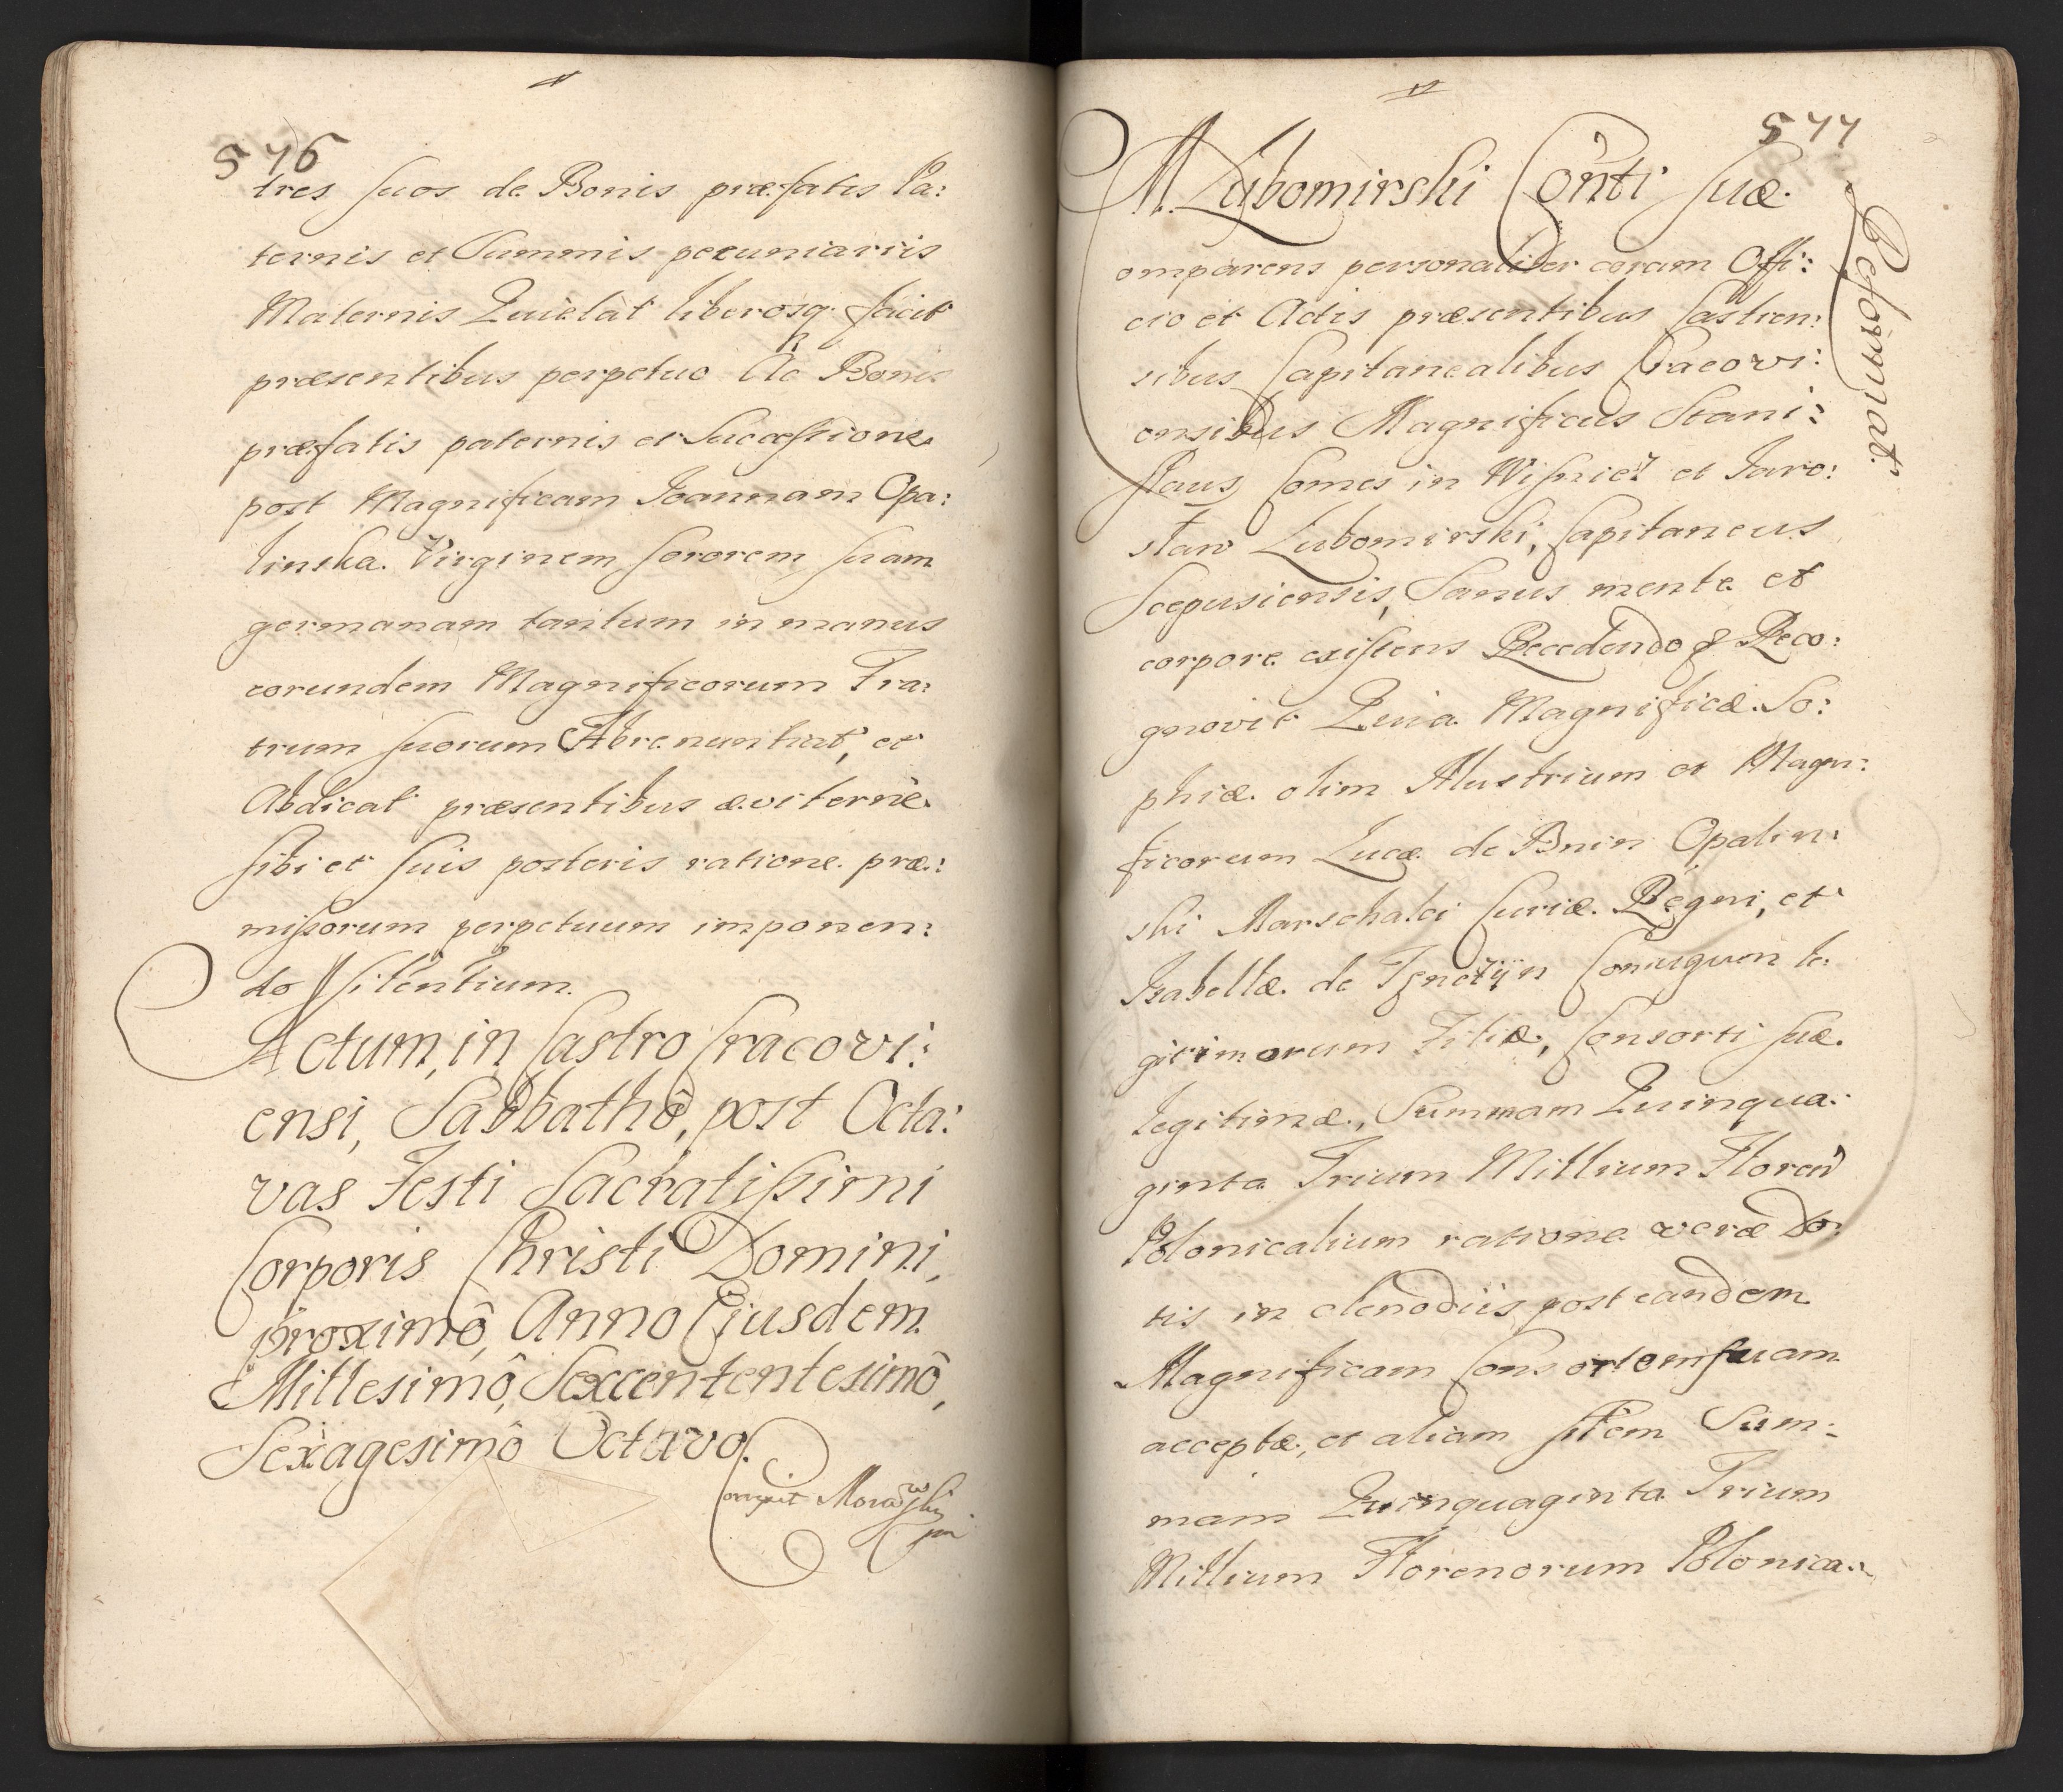 576
tres suos de Bonis præfatis Pa:
ternis et Summis pecuniariis
Maternis Quietat liberosq. facit
præsentibus perpetuo Ac Bonis
præfatis paternis et Successione
post Magnificam Joannam Opa:
linska Virginem sororem suam
germanam tantum in manus
eorundem Magnificorum Fra:
trum suorum Abrenuntiat, et
Abdicat præsentibus æviternè
sibi et suis posteris ratione præ:
missorum perpetuum imponen:
do silentium.
Actum, in Castro Cracovi:
ensi, Sabbathô, post Octa:
vas Festi Sacratissimi
Corporis Christi Domini,
proximô, Anno Ejusdem
Millesimô, Sexcententesimô,
Sexagesimô Octavo.
Correxit Morawski
mp
577
M. Lubomirski Cônti suæ
Reformat.
omparens personaliter coram Offi:
cio et Actis præsentibus Castren:
sibus Capitanealibus Cracovi:
ensibus Magnificus Stani:
slaus Comes in Wisnicz et Jaro:
slaw Lubomirski, Capitaneus
Scepusiensis, Sanus mente et
corpore existens Recedendo & Reco:
gnovit Quia Magnificæ So:
phiæ olim Illustrium et Magni:
ficorum Lucæ de Bnin Opalin:
ski Marschalci Curiæ Regni, et
Izabellæ de Tęnczyn Coniugum le:
gitimorum Filiæ, Consorti suæ
legitimæ, Summam Quinqua:
ginta Trium Millium Floren
Polonicalium ratione veræ Do:
tis in clenodiis post eandem
Magnificam Consortem suam
acceptæ, et aliam item Sum:
mam Quinquaginta Trium
Millium Florenorum Polonica: